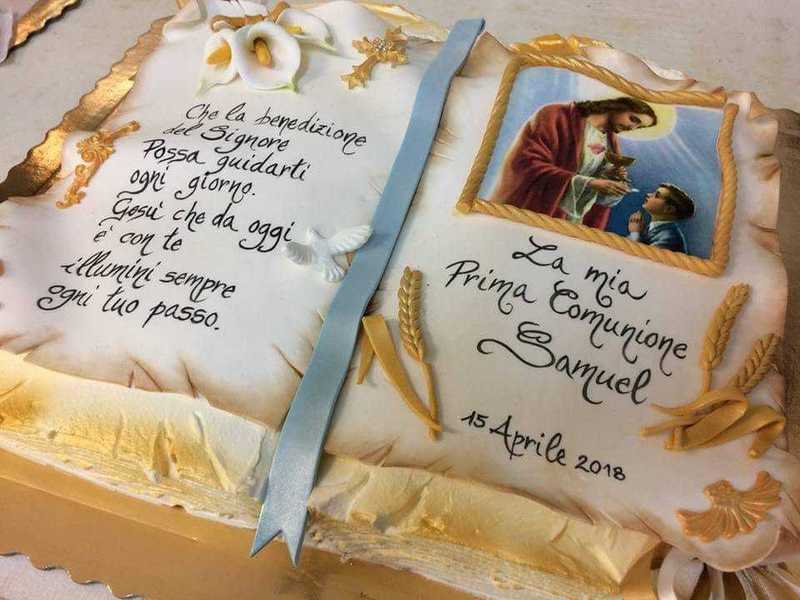 Che la benedizione
del Signore
Possa guidarti
ogni giorno.
Gesù che da oggi
è con te
illumini sempre
ogni tuo passo.
La mia
Prima Comunione
Samuel
15 Aprile 2018